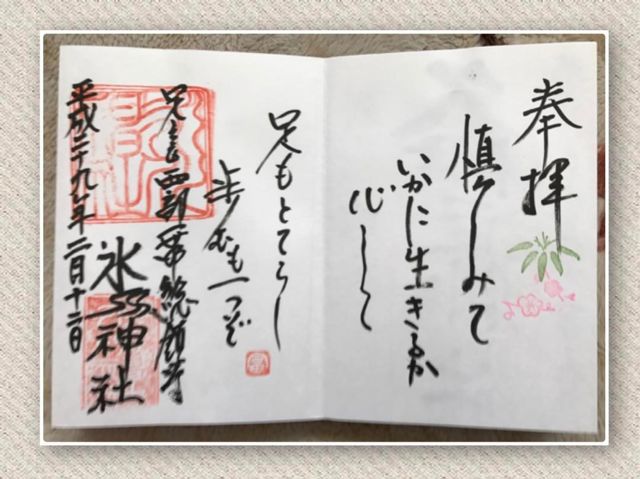 奉拝
慎しみて
いかに生きるか
心して
足もとてらし
歩むも一つぞ
足立西部一帯総鎮守
氷川神社
平成二十九年二月十二日